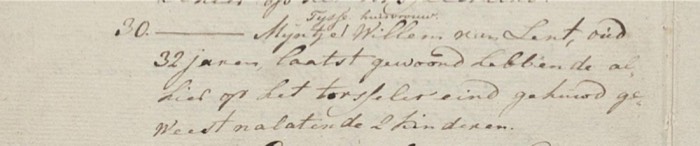 Tysse huisvrouw.
30. ——— Myntje Willem van Lent, oud
32 jaren, laatst gewoond hebbende al-
hier op het torsseler eind gehuwd ge-
weest nalatende 2 kinderen.